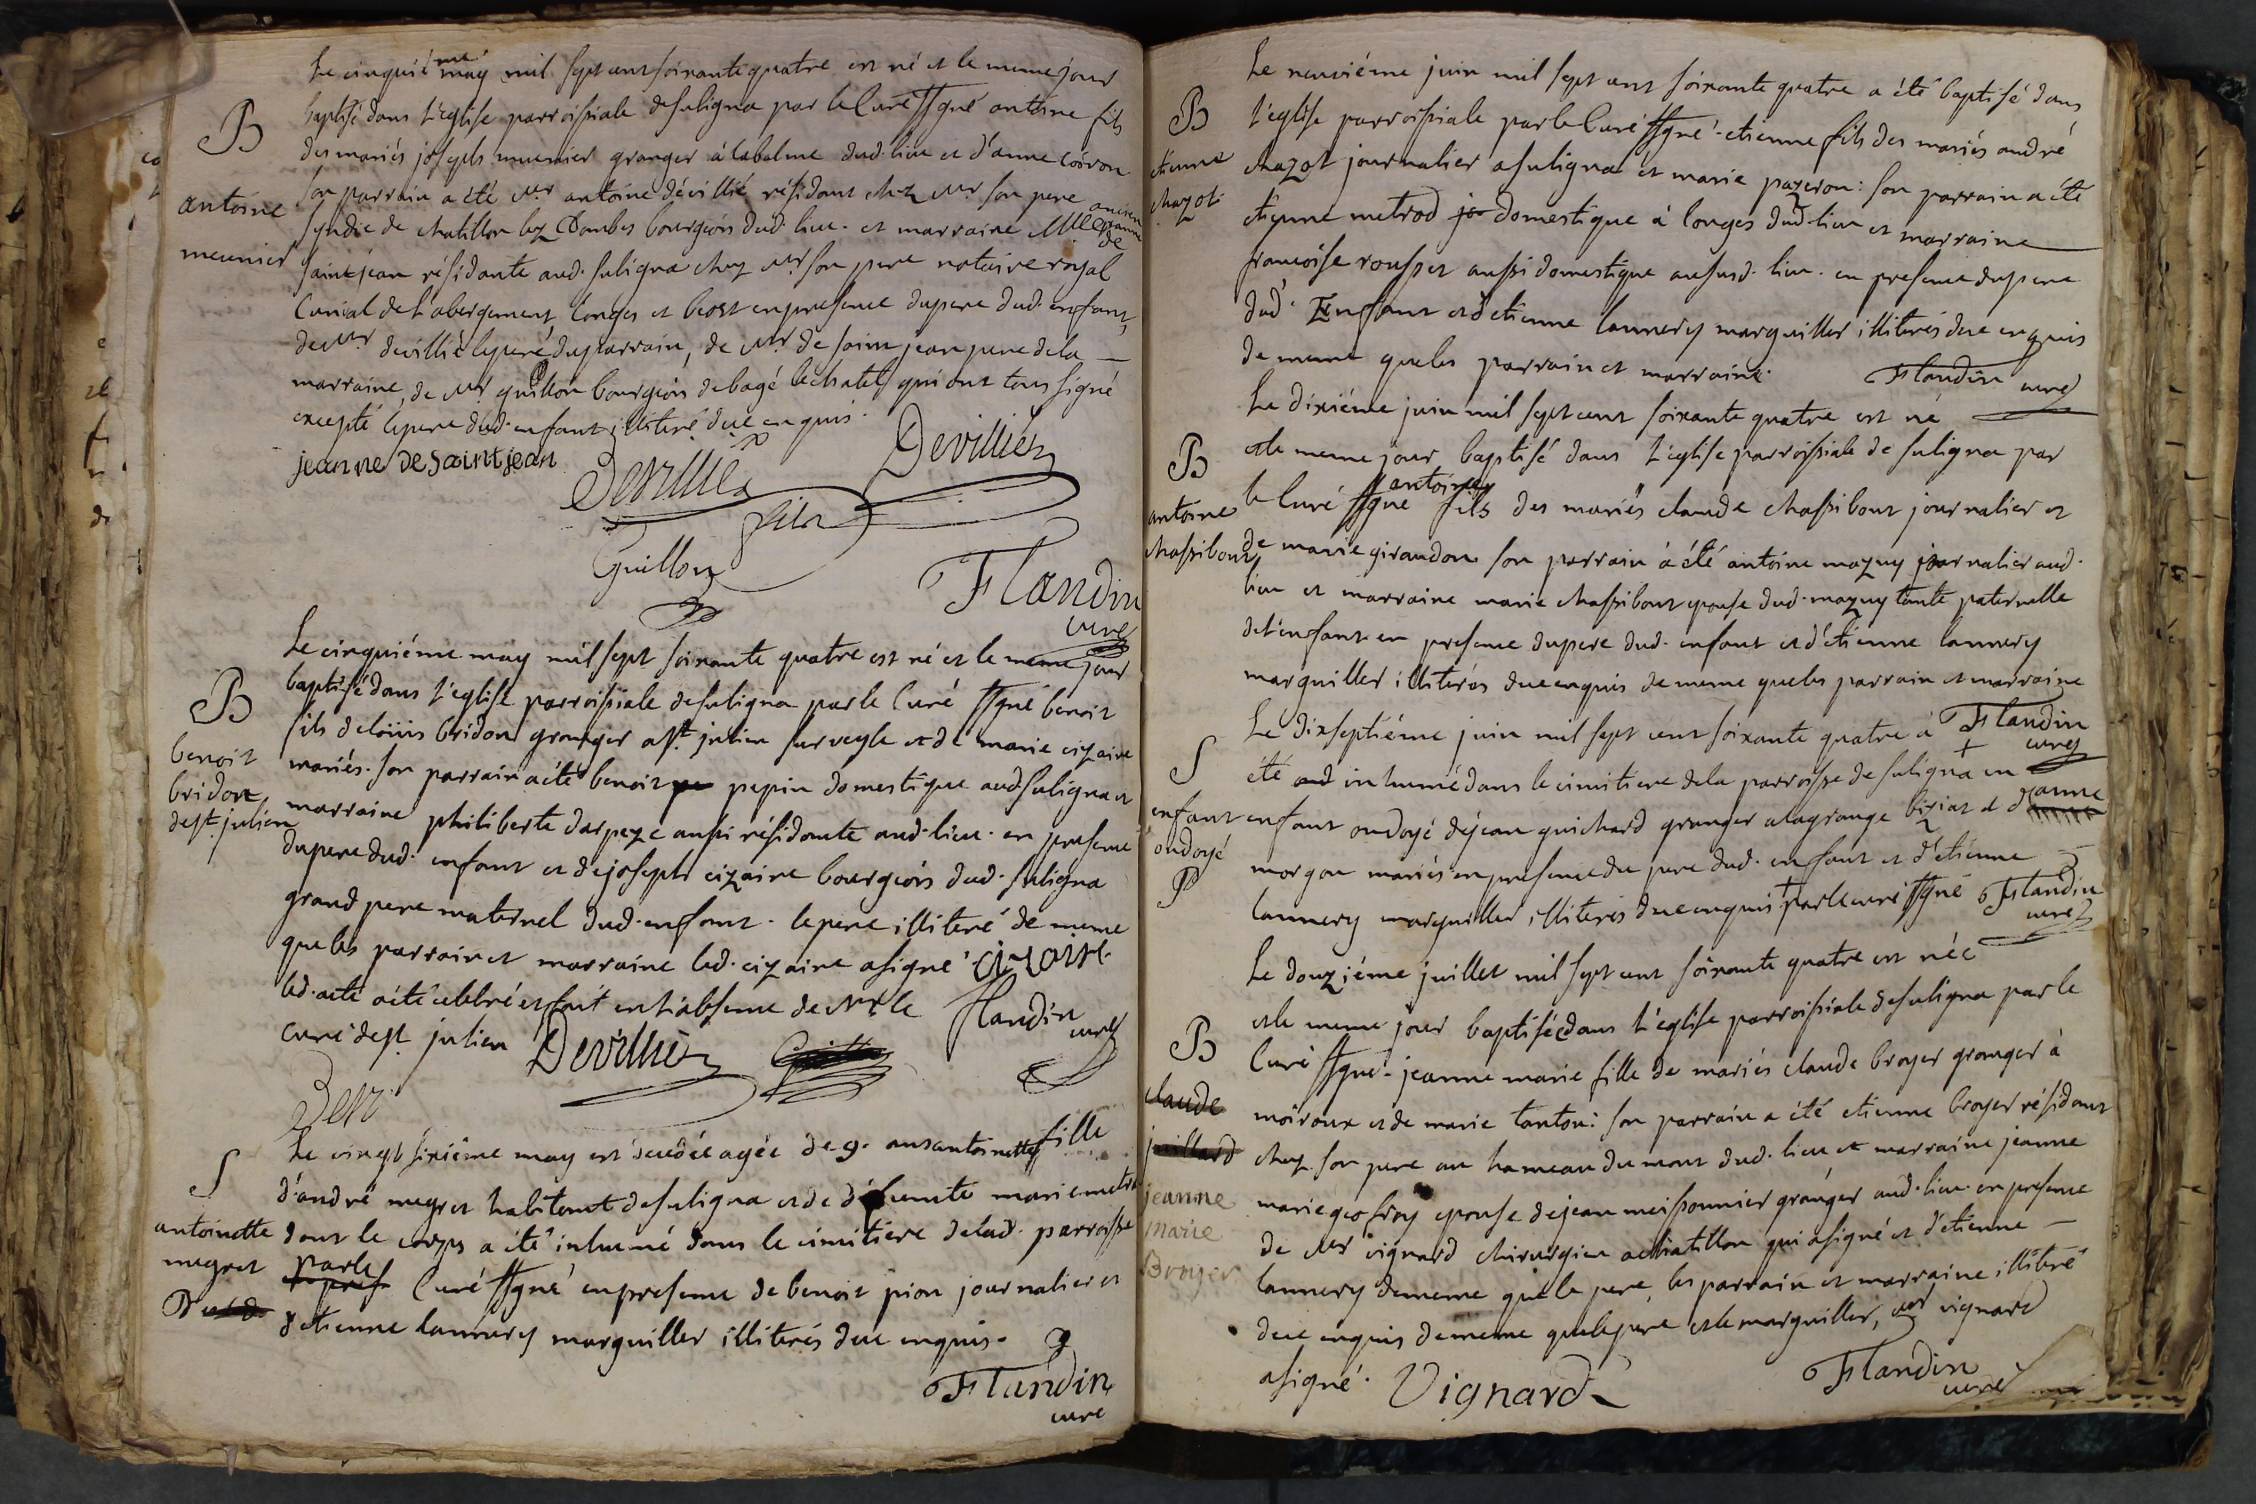 Le cinquiéme may mil sept cent soixante quatre est né et le meme jour
baptisé dans l'eglise parroissiale de suligna par le Curé ssgné antoine fils
des mariés joseph meunier granger à labalme dud. lieu et d'anne coiron
son parrain a été Mr antoine dévillié résidant chez Mr son pere ancien
syndic de chatillon lez Dombes bourgeois dud. lieu. et marraine Mlle jeanne de
saint jean résidante aud. suligna chez Mr son pere notaire royal
Curial de L'abergement longes et beost en presence du pere dud. enfant,
de Mr devillié le pere du parrain, de Mr de saint jean pere de la
marraine, de Mr guillon bourgeois de bagé le chatel qui ont tous signé
excepté le pere dud. enfant illiteré de ce enquis.
B
antoine
meunier
jeanne de saint jean
Devillié
fils
Devillié
Guillon
Flandin
curé
Le cinquiéme may mil sept soixante quatre est né et le meme jour
baptisé dans l'eglise parroissiale de suligna par le Curé ssgné benoit
fils de loüis bridon granger a st. julien sur veyle et de marie cizaire
mariés. son parrain a été benoit pe pepin domestique aud suligna et
marraine philiberte darpeze aussi résidante aud. lieu. en presence
du pere dud. enfant et de joseph cizaire bourgeois dud. suligna
grand pere maternel dud. enfant. le pere illiteré de meme
que les parrain et marraine led. cizaire a signé cizaire
led. acte a été celebré et fait en l'absence de Mr le
curé de st. julien
B
benoit
bridon
de st. julien
Devillié
Flandin
curé
Devi
Le vingt sixiéme may est décédée agée de 9. ans antoinette fille
d'andré megret habitant de suligna et de défunte marie
dont le corps a été inhumé dans le cimitiere de lad. parroisse
par le Curé ssgné en presence de benoit pion journalier et
d'etienne lannery marguiller illiterés de ce enquis.
S
antoinette
megret
Flandin
curé
Le neuviéme juin mil sept cent soixante quatre a été baptisé dans
l'eglise parroissiale par le Curé ssgné. etienne fils des mariés andré
chazot journalier a suligna et marie pazeron: son parrain a été
etienne metrod jo domestique à longes dud. lieu et marraine
francoise rousset aussi domestique au susd. lieu. en presence du pere
dud. Enfant et d'etienne lannery marguiller illiterés de ce enquis
de meme que les parrain et marraine.
Flandin curé
B
etienne
chazot
Le dixiéme juin mil sept cent soixante quatre est né
et le meme jour baptisé dans l'eglise parroissiale de suligna par
le Curé ssgné antoine fils des mariés claude chassibout journalier et
de marie giraudon son parrain à été antoine mazuy journalier aud.
lieu et marraine marie chassibout epouse dud. mazuy tante paternelle
de l'enfant en presence du pere dud. enfant et d'etienne lannery
marguiller illiterés de ce enquis de meme que les parrain et marraine
B
antoine
chassibout
Flandin
curé
Le dixseptiéme juin mil sept cent soixante quatre à
été aud inhumé dans le cimitiere de la parroisse de suligna un
enfant ondoyé de jean guichard granger a la grange biziat et d'anne
morgon mariés en presence du pere dud. enfant et d'etienne
lannery marguiller illiterés de ce enquis + par le curé ssgné
Flandin
curé
S
enfant
ondoyé
Le douziéme juillet mil sept cent soixante quatre est née
et le meme jour baptisée dans l'eglise parroissiale de suligna par le
Curé ssgné. jeanne marie fille de mariés claude broyer granger à
moiroux et de marie tanton: son parrain a été etienne broyer résidant
chez son pere au hameau du mont dud. lieu et marraine jeanne
marie geofroy epouse de jean meissonnier granger aud. lieu. en presence
de Mr vignard chirurgien a chatillon qui a signé et d'etienne
lannery de meme que le pere, les parrain et marraine illiteré
de ce enquis de meme que le pere et le marguiller, Mr vignard
a signé.
B
claude
juillard
jeanne
marie
Broyer
Vignard
Flandin
curé